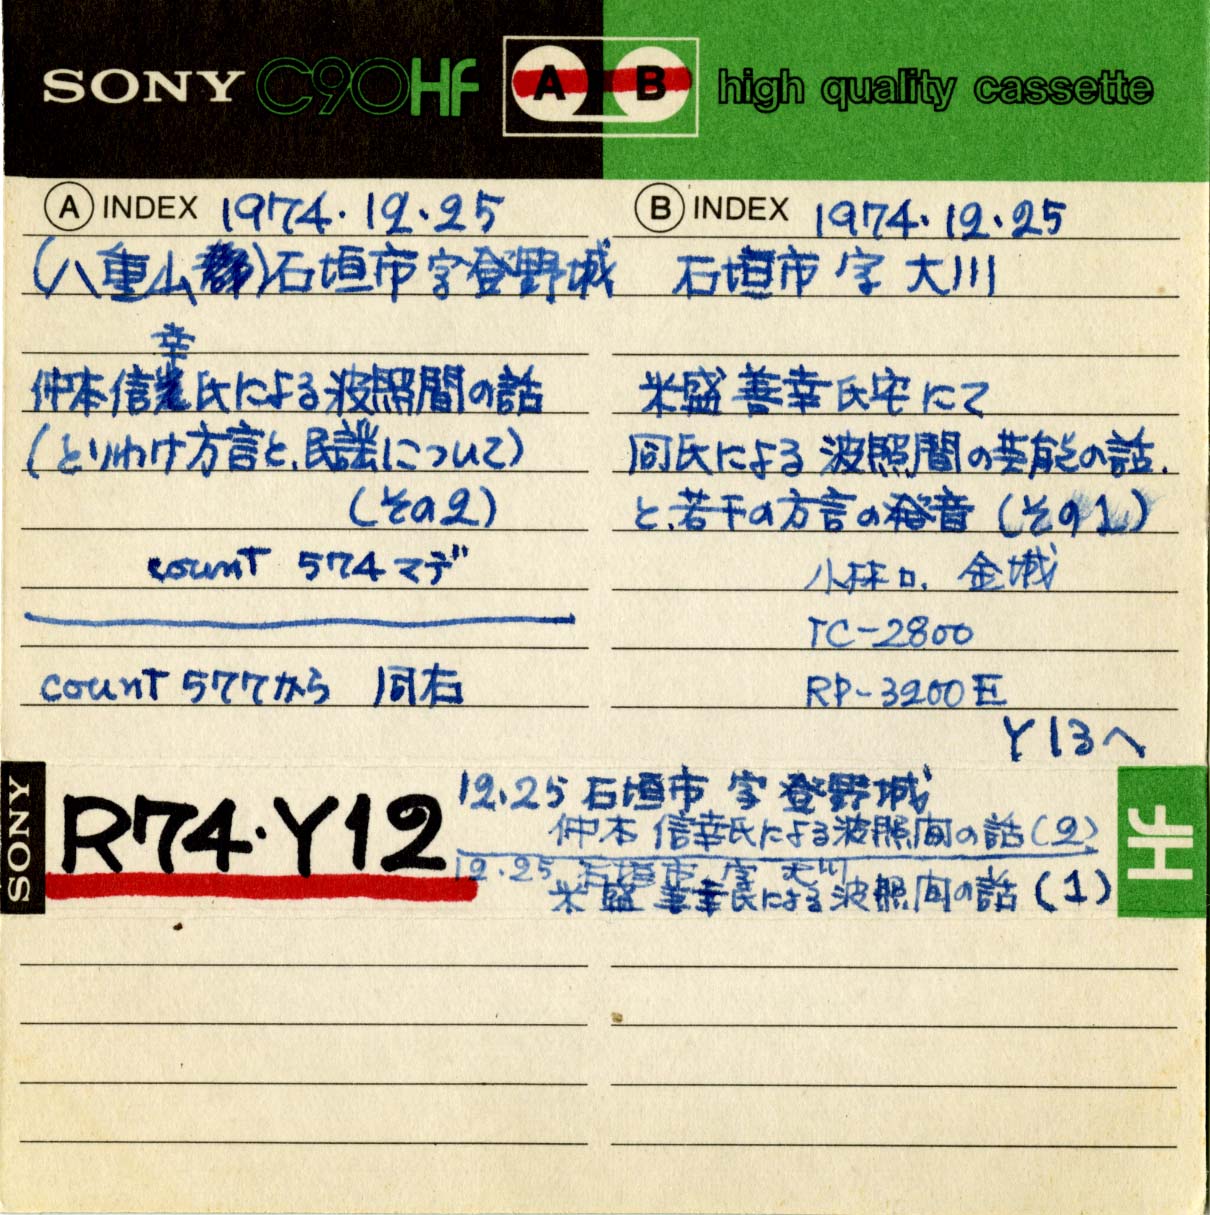 SONY C90Hf A B high quality cassette
A INDEX 1974.12.25
(八重山郡)石垣市字登野城
幸
仲本信光氏による波照間の話
(とりわけ方言と、民謡について)
(その2)
count 574マデ
count 577から 同右
B INDEX 1974.12.25
石垣市字大川
米盛善幸氏宅にて
同氏による波照間の芸能の話
と、若干の方言の発音(その1)
小林ロ. 金城
TC-2800
RP-3200E
Y13へ
SONY
R74.Y12
12.25 石垣市字登野城
仲本信幸氏による波照间の話(2)
12.25 石垣市字大川
米盛善幸氏による波照间の話(1)
Hf